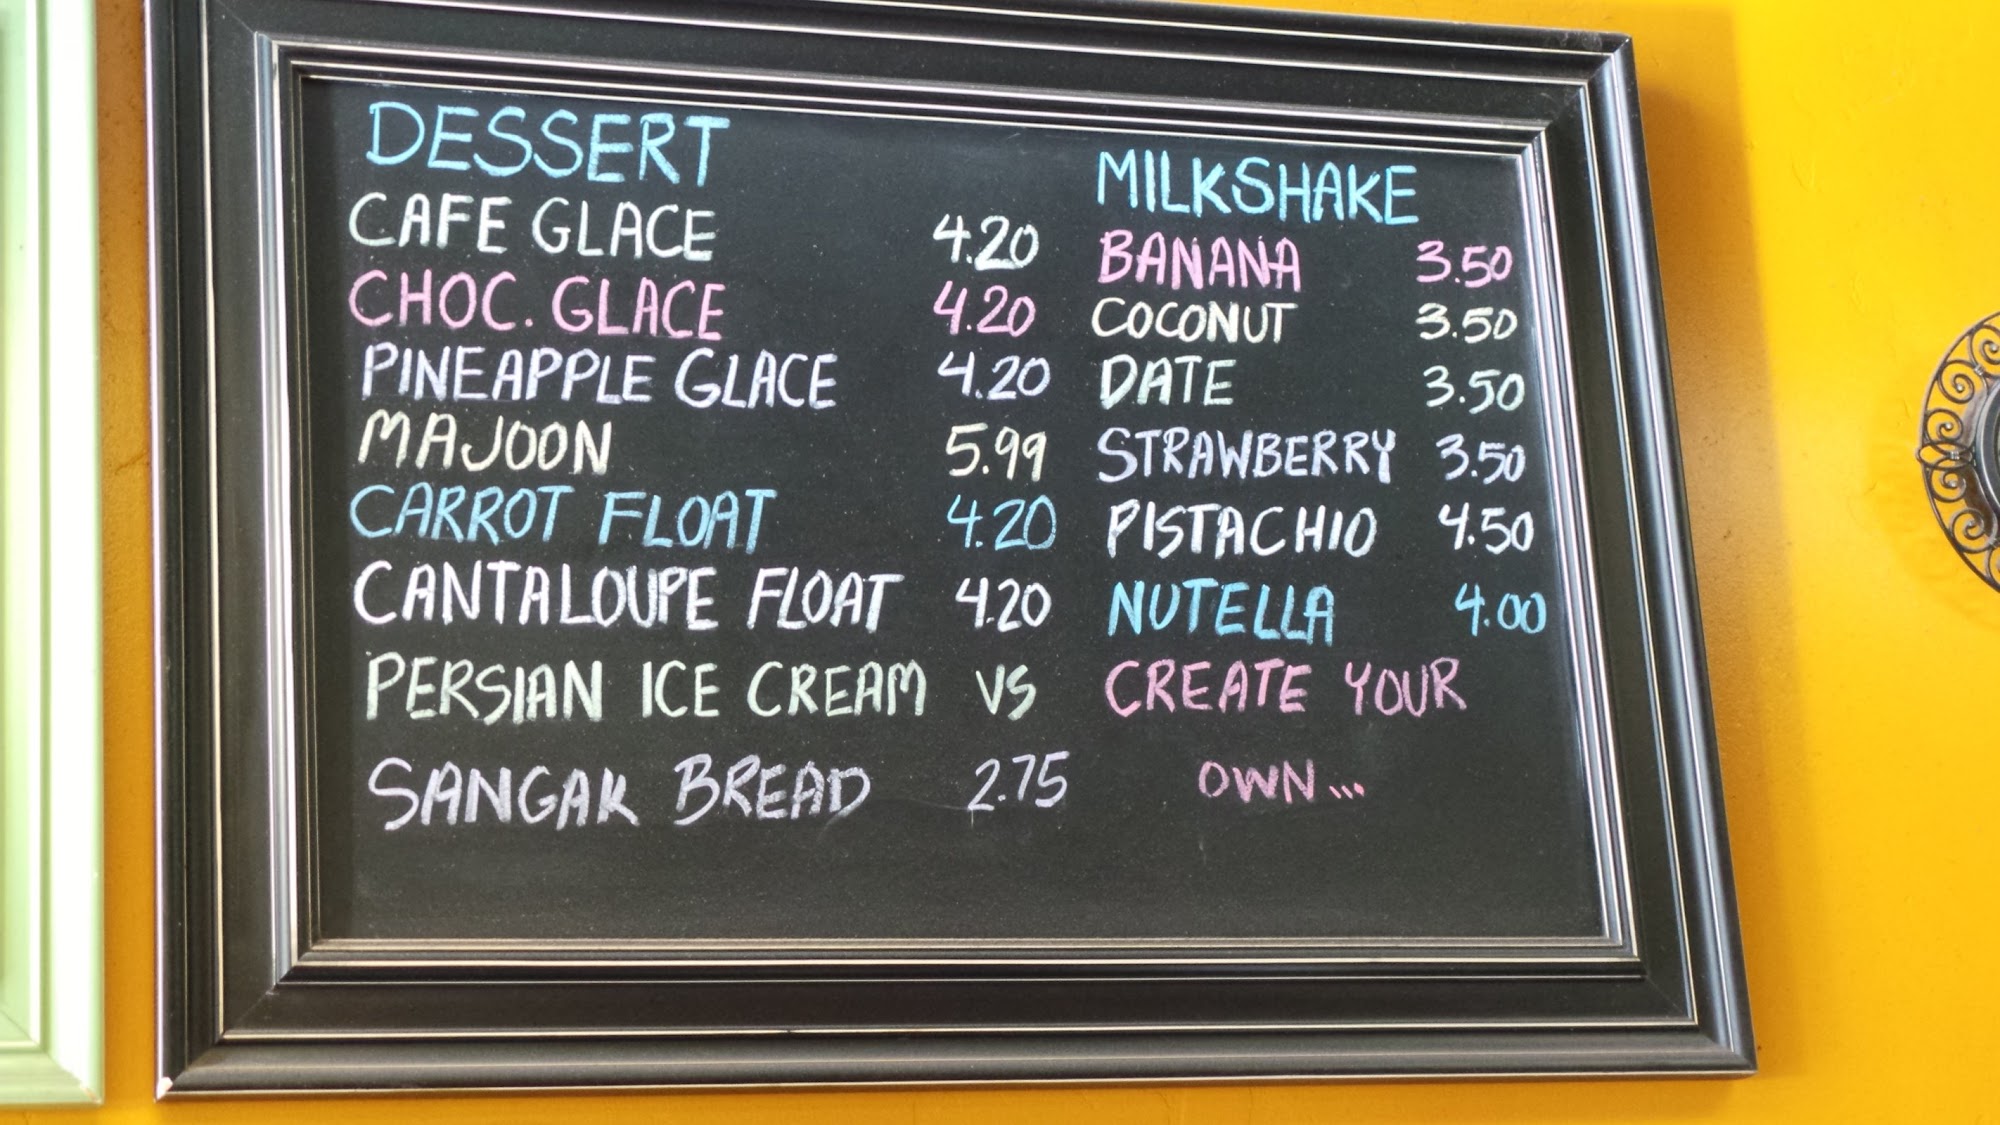 DESSERT
CAFE GLACE 4.20
CHOC. GLACE 4.20
PINEAPPLE GLACE 4.20
MAJOON 5.99
CARROT FLOAT 4.20
CANTALOUPE FLOAT 4.20
PERSIAN ICE CREAM VS
SANGAK BREAD 2.75
MILKSHAKE
BANANA 3.50
COCONUT 3.50
DATE 3.50
STRAWBERRY 3.50
PISTACHIO 4.50
NUTELLA 4.00
CREATE YOUR
OWN...